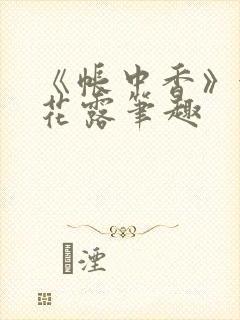 《帐中香》
花露笔趣
湮